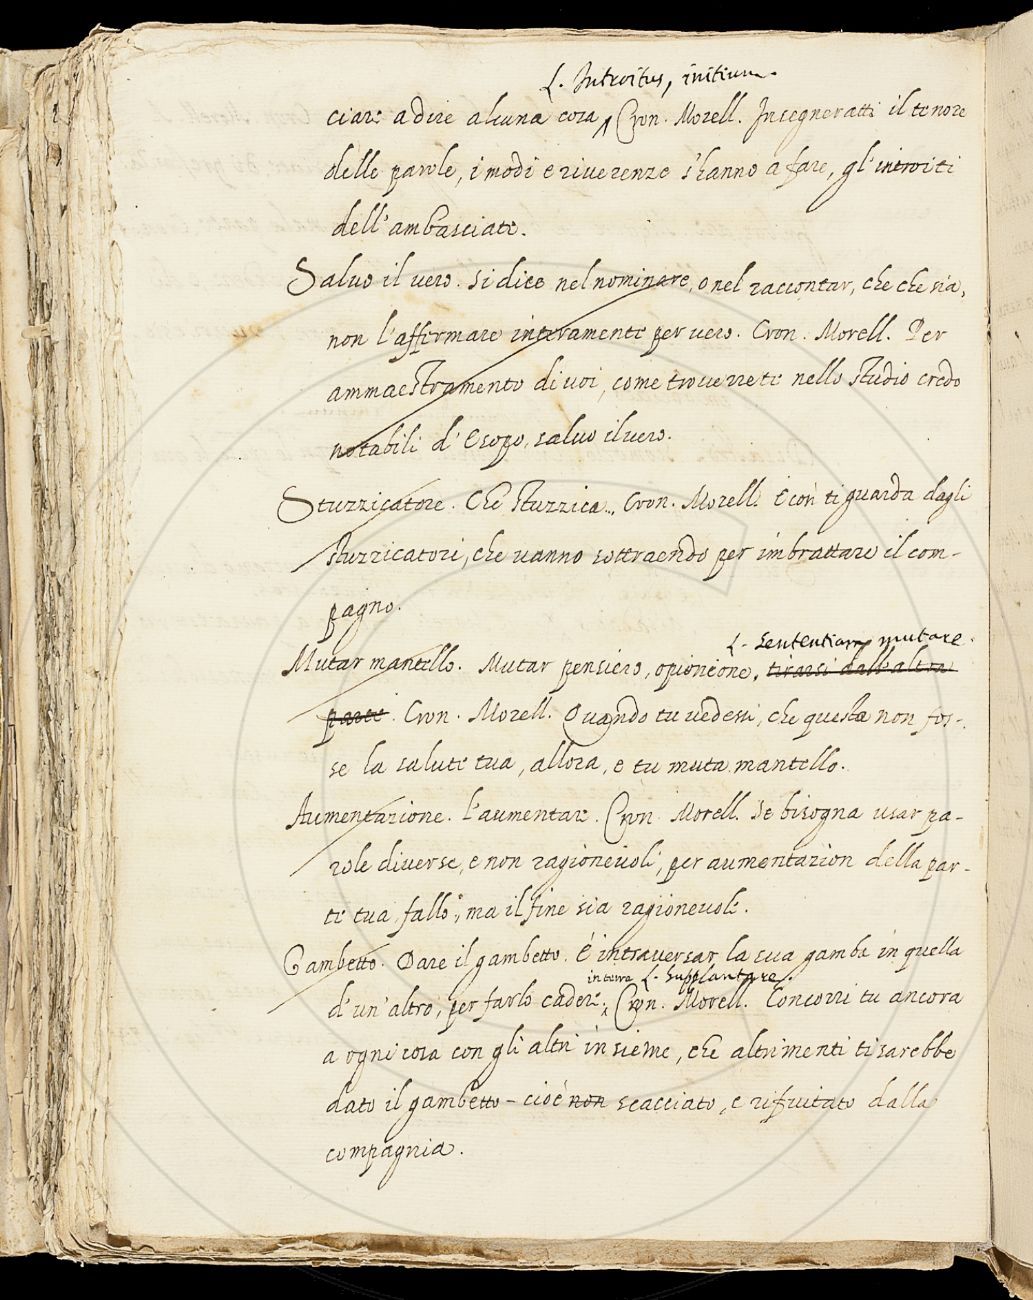 L. Introitus, initium.
ciare a dire alcuna cosa Cron. Morell. Insegneratti il tenore
delle parole, i modi e riverenze s'hanno a fare, gl'introiti
dell'ambasciate.
Salvo il vero. Si dice nel nominare, o nel raccontar, che che sia,
non l'affirmare interamente per vero. Cron. Morell. Per
ammaestramento di voi, come troverrete nello studio credo
notabili d'Esopo, salvo il vero.
Stuzzicatore. Che stuzzica. Cron. Morell. E così ti guarda dagli
stuzzicatori, che vanno sottraendo per imbrattare il com-
pagno.
L. sententiam mutare.
Mutar mantello. Mutar pensiero, opinione, tirarsi dall'altra
parte. Cron. Morell. Quando tu vedessi, che questa non fos-
se la salute tua, allora, e tu muta mantello.
Aumentazione. L'aumentare. Cron. Morell. Se bisogna usar pa-
role diverse, e non ragionevoli, per aumentazion della par-
te tua, fallo, ma il fine sia ragionevole.
Gambetto. Dare il gambetto. È intraversar la sua gamba in quella
in terra L. supplantare.
d'un'altro, per farlo cadere. Cron. Morell. Concorri tu ancora
a ogni cosa con gli altri insieme, che altrimenti ti sarebbe
dato il gambetto - cioè non scacciato, e rifiutato dalla
compagnia.